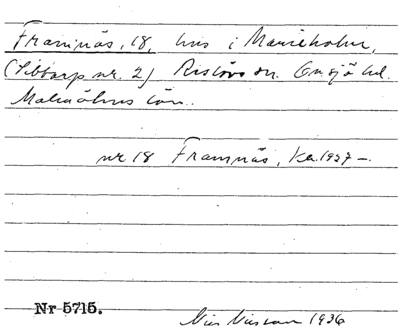 Framnäs, 18, hus i Marieholm,
(Sibbarp nr. 2) Reslövs sn. Onsjö hd.
Malmöhus län.
nr 18 Framnäs, Ka. 1937 —.
Nr 5715.
Nils Nilsson 1936